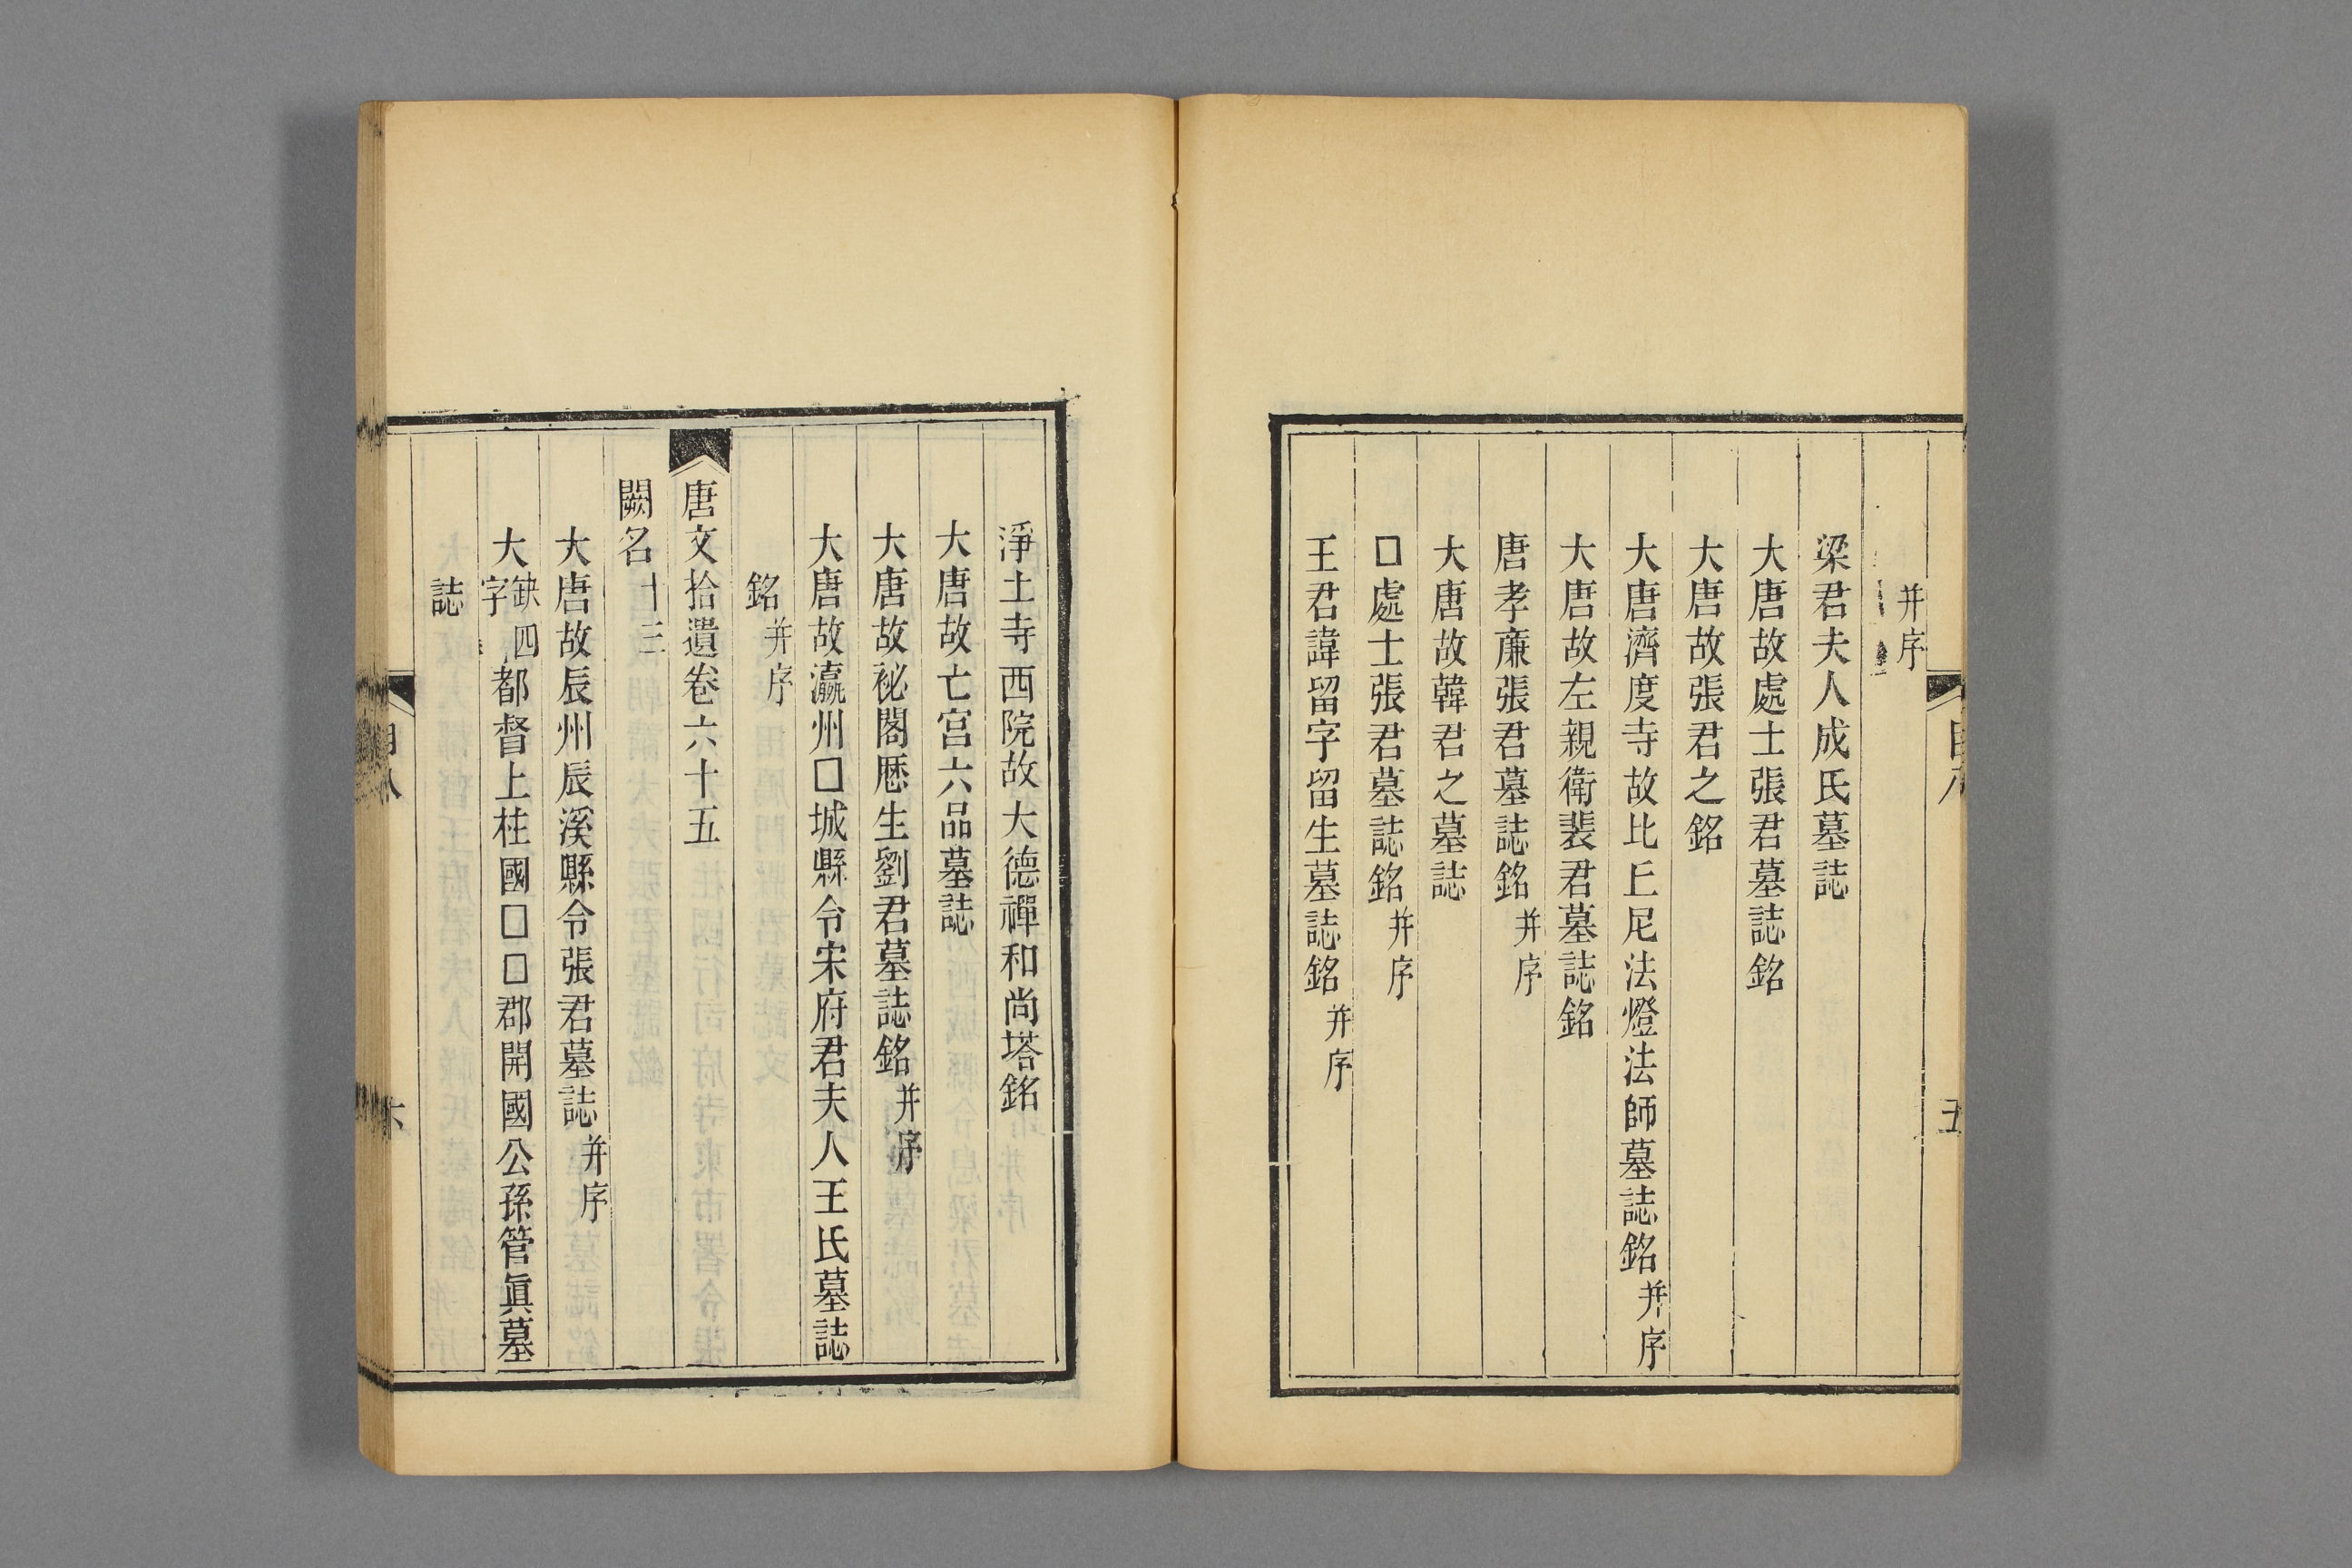 并序
梁君夫人成氏墓誌
大唐故處士張君墓誌銘
大唐故張君之銘
大唐濟度寺故比丘尼法燈法師墓誌銘并序
大唐故左親衛裴君墓誌銘
唐孝廉張君墓誌銘并序
大唐故韓君之墓誌
□處士張君墓誌銘并序
王君諱留字留生墓誌銘并序
五
淨土寺西院故大德禪和尚塔銘
大唐故亡宮六品墓誌
大唐故祕閣厯生劉君墓誌銘并序
大唐故瀛州□城縣令宋府君夫人王氏墓誌
銘并序
唐文拾遺卷六十五
闕名十三
大唐故辰州辰溪縣令張君墓誌并序
大缺四字都督上柱國□□郡開國公孫管眞墓
誌
目八
六